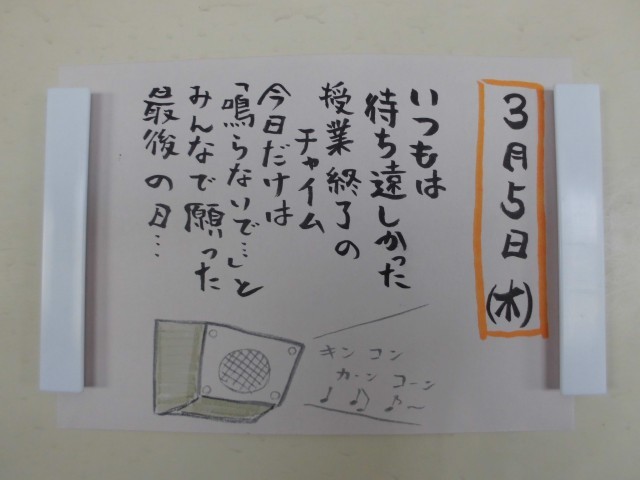 3月5日(木)
いつもは
待ち遠しかった
授業終了の
チャイム
今日だけは
「鳴らないで…」と
みんなで願った
最後の日…
キンコン
カーンコーン